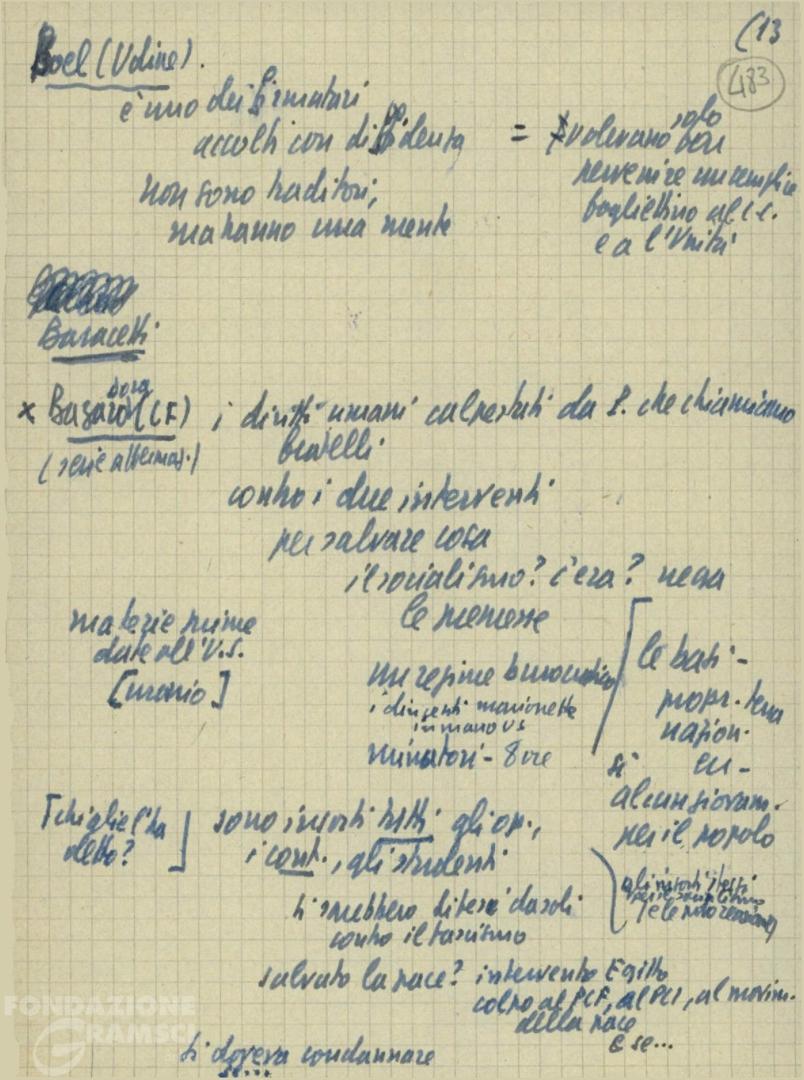 (13
483
Boel (Udine).
è uno dei firmatari
accolti con diffidenza
non sono traditori,
ma hanno una mente
= volevano solo
pervenire un semplice
bogliettino al C.C.
e a l'Unità
Baracetti
x Basadora (CF)
i diritti umani calpestati da P. che chiamiamo
fratelli
contro i due interventi
per salvare cosa
il socialismo? c'era? nega
le premesse
materie prime
date all'U.S.
[uranio]
un regime burocratico
i dirigenti marionette
in mano US
minatori - 8 ore
le basi -
propr. terra
nazion.
si
alcun giovam.
per il popolo
[chi glie l'ha
detto?]
sono insorti tutti gli op.,
i cont., gli studenti
gli insorti stessi
si sarebbero difesi da soli
contro il fascismo
salvato la pace? intervento Egitto
colpo al PCF, al PCI, al movim.
della pace
e se...
si doveva condannare
se...
FONDAZIONE
GRAMSCI